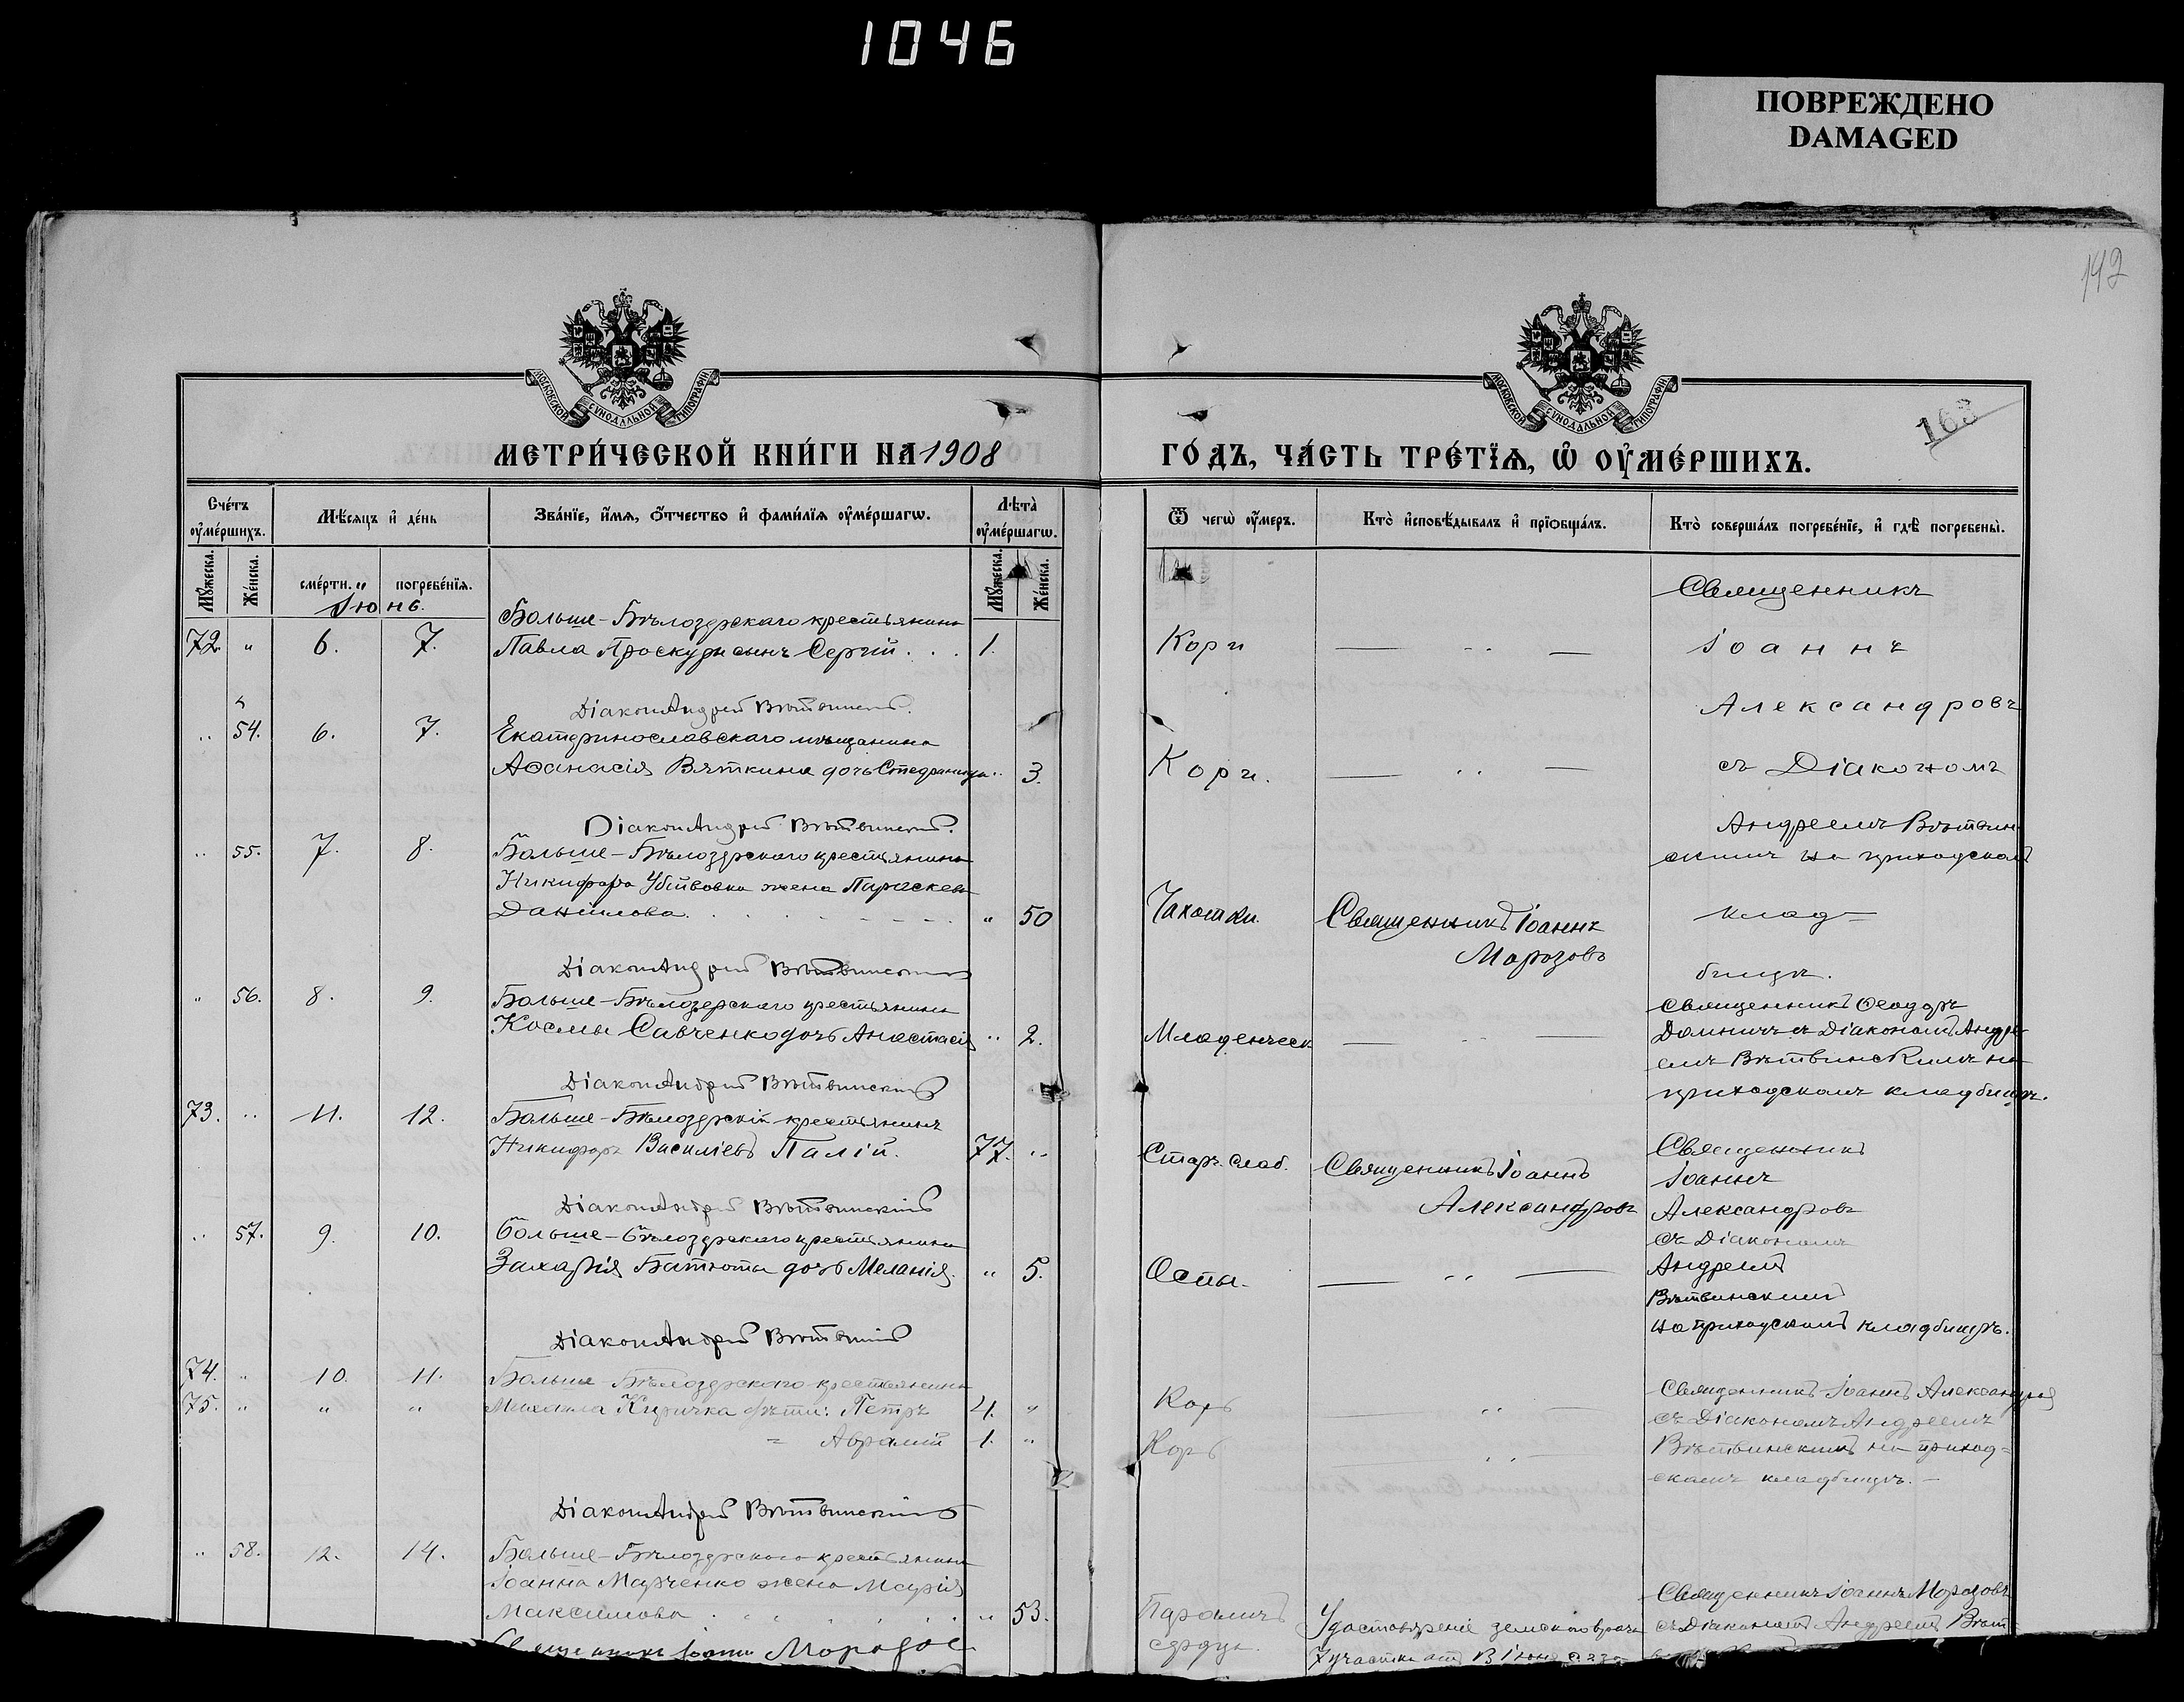 1046
ПОВРЕЖДЕНО
DAMAGED
142
МОСКОВСКОЙ СУНОДАЛЬНОЙ ТИПОГРАФІИ
МОСКОВСКОЙ СУНОДАЛЬНОЙ ТИПОГРАФІИ
163
МЕТРИ́ЧЕСКОЙ КНИ́ГИ НА 1908
ГО́ДЪ, ЧА́СТЬ ТРЕ́ТЇѦ, Ѽ ОУ҆МЕ́РШИХЪ.
Сче́тъ оу҆ме́ршихъ.
Мѣ́сяцъ и҆ де́нь
Зва́нїе, и҆́мѧ, ѻ҆́тчество и҆ фами́лїѧ оу҆ме́ршагѡ.
Лѣ́та оу҆ме́ршагѡ.
Ѿ чегѡ̀ оу҆́меръ.
Кто̀ и҆сповѣ́дывалъ и҆ прїѡбща́лъ.
Кто̀ соверша́лъ погребе́нїе, и҆ гдѣ̀ погребены̀.
Мꙋ́жеска.
Же́нска.
сме́рти.
погребе́нїѧ.
Мꙋ́жеска.
Же́нска.
Іюнь.
Больше-Бѣлозерскаго крестьянина
72. " 6. 7. Павла Проскуры сынъ Сергій . . . 1.
Кори — " —
Священникъ
Іоаннъ
Александровъ
съ Діакономъ
Андреемъ Вѣтвин-
скимъ на приходскомъ
клад-
бищѣ.
Діаконъ Андрей Вѣтвинскій.
" 54. 6. 7. Екатеринославскаго мѣщанина
Аѳанасія Вяткина дочь Стефанида " 3.
Кори. — " —
Діаконъ Андрей Вѣтвинскій.
" 55. 7. 8. Больше-Бѣлозерскаго крестьянина
Никифора Убійвовка жена Параскева
Даніилова . . . " 50
Чахотки.
Священникъ Іоаннъ
Морозовъ
Діаконъ Андрей Вѣтвинскій
" 56. 8. 9. Больше-Бѣлозерскаго крестьянина
Космы Савченко дочь Анастасія " 2.
Младенческ — " —
Священникъ Ѳеодоръ
Домничъ съ Діакономъ Андре-
емъ Вѣтвинскимъ на
приходскомъ кладбищѣ.
Діаконъ Андрей Вѣтвинскій
73. " 11. 12. Больше-Бѣлозерскій крестьянинъ
Никифоръ Василіевъ Палій. 77. "
Старч. слаб.
Священникъ Іоаннъ
Александровъ
Священникъ
Іоаннъ
Александровъ
съ Діакономъ
Андреемъ
Вѣтвинскимъ
на приходскомъ кладбищѣ.
Діаконъ Андрей Вѣтвинскій
" 57. 9. 10. Больше-Бѣлозерскаго крестьянина
Захарія Батюта дочь Меланія. " 5.
Оспы. — " —
Діаконъ Андрей Вѣтвинскій
74. " 10. 11. Больше-Бѣлозерскаго крестьянина
75. " " " Михаила Киричка дѣти: Петръ 4. "
= Аврамій 1. "
Корь — " —
Корь " —
Священникъ Іоаннъ Александровъ
съ Діакономъ Андреемъ
Вѣтвинскимъ на приход-
скомъ кладбищѣ. —
Діаконъ Андрей Вѣтвинскій
" 58. 12. 14. Больше-Бѣлозерскаго крестьянина
Іоанна Марченко жена Марія
Максимова . . . " 53.
Параличъ
сердца.
Удостовѣреніе земскаго врача
7 участка отъ 13 Іюня
Священникъ Іоаннъ Морозовъ
съ Діакономъ Андреемъ Вѣт-
Священникъ Іоаннъ Морозов